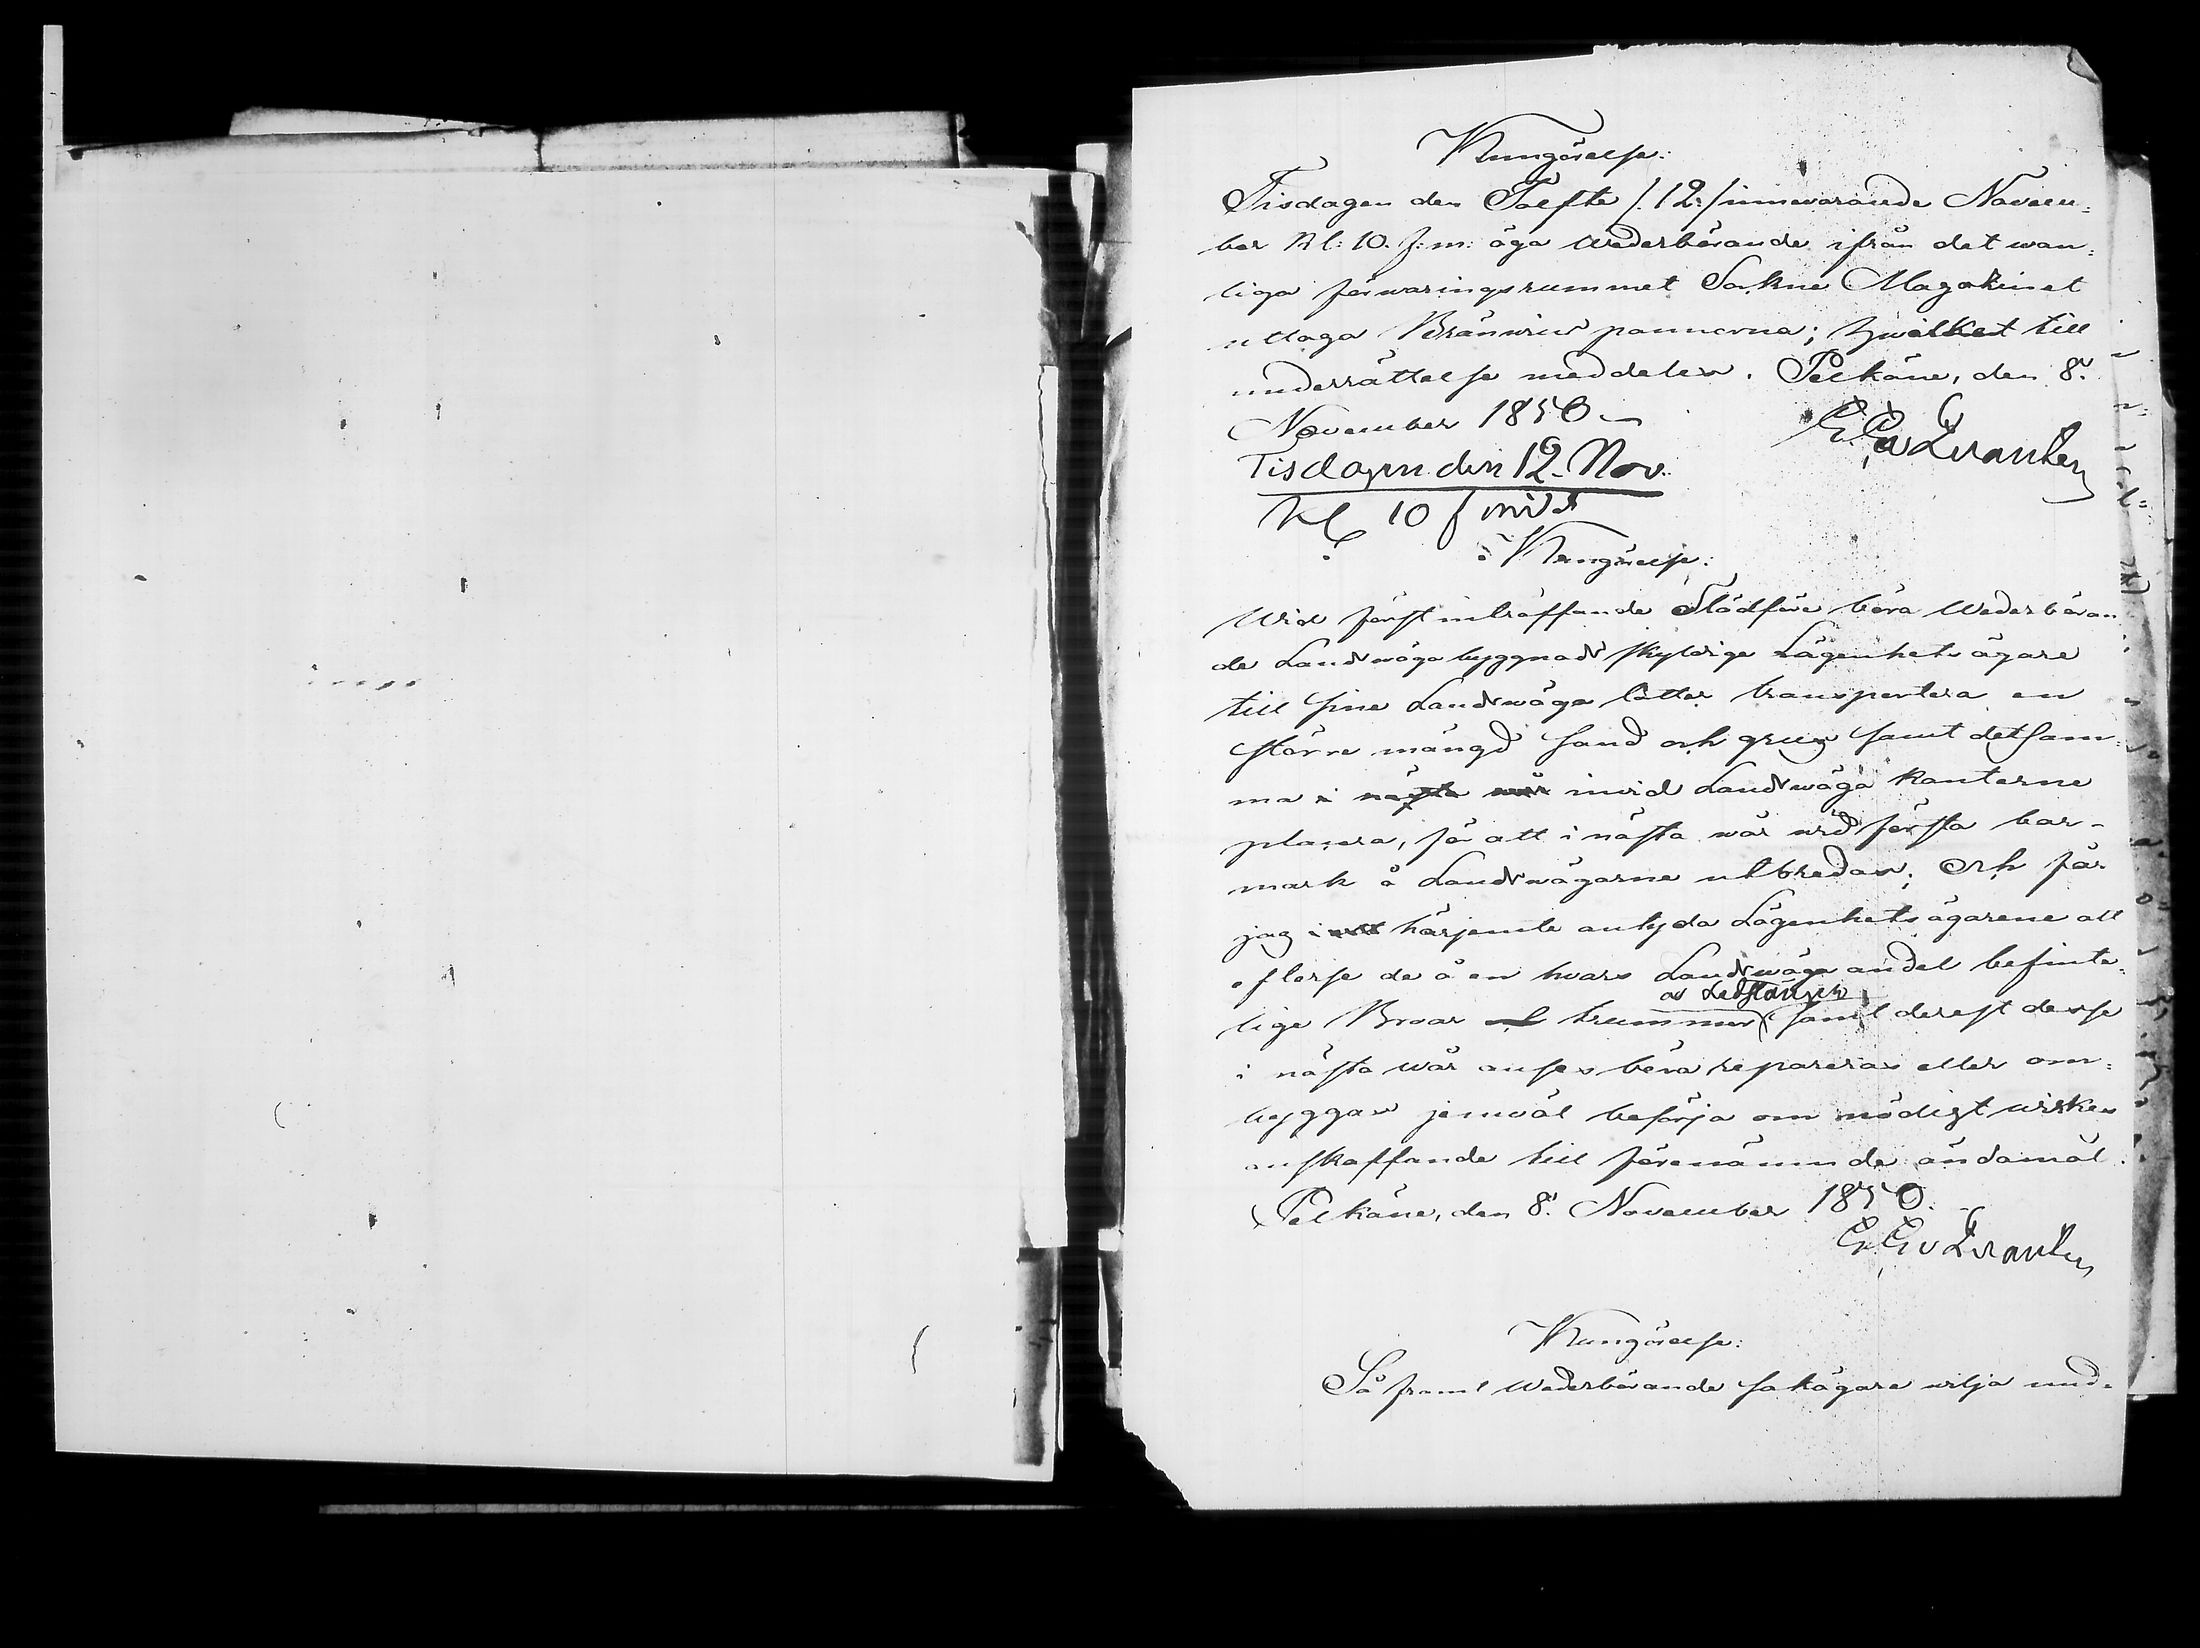 Kungörelse:
Tisdagen den Tolfte /: 12 :/ innevarande Novem:
ber Kl: 10. f: m: äga wederbörande ifrån det wan:
liga förwaringsrummet Sockne Magazinet
uttaga Bränwins pannorna; hwilket till
underrättelse meddelas. Pelkäne, den 8.
November 1850 —
E. E. v Qvanten
Tisdagen den 12. Nov.
Kl 10 f mid
Kungörelse:
Wid först inträffande Slädföre böra Wederböran
de Landtwägs byggnads skyldige Lägenhets ägare
till sine Landtwägs lotter transportera en
större mängd sand och grus samt detsam:
ma i nästa wår inwid Landtwägs kanterne
placera, för att i nästa wår wid första bar-
mark å Landtwägarne utbredas; Och får
jag härjemte antyda Lägenhets ägarene att
efterse de å en hvars Landtwägs andel befinte:
lige Broar trummor samt derest desse
as Ledstänger
i nästa wår anses böra repareras eller om:
byggas jemväl besörja om nödigt wirkes
anskaffande till förenämnde ändamål.
Pelkäne, den 8. November 1850.
E. E. v Qvanten
Kungörelse:
Så framt Wederbörande sakägare wilja und-